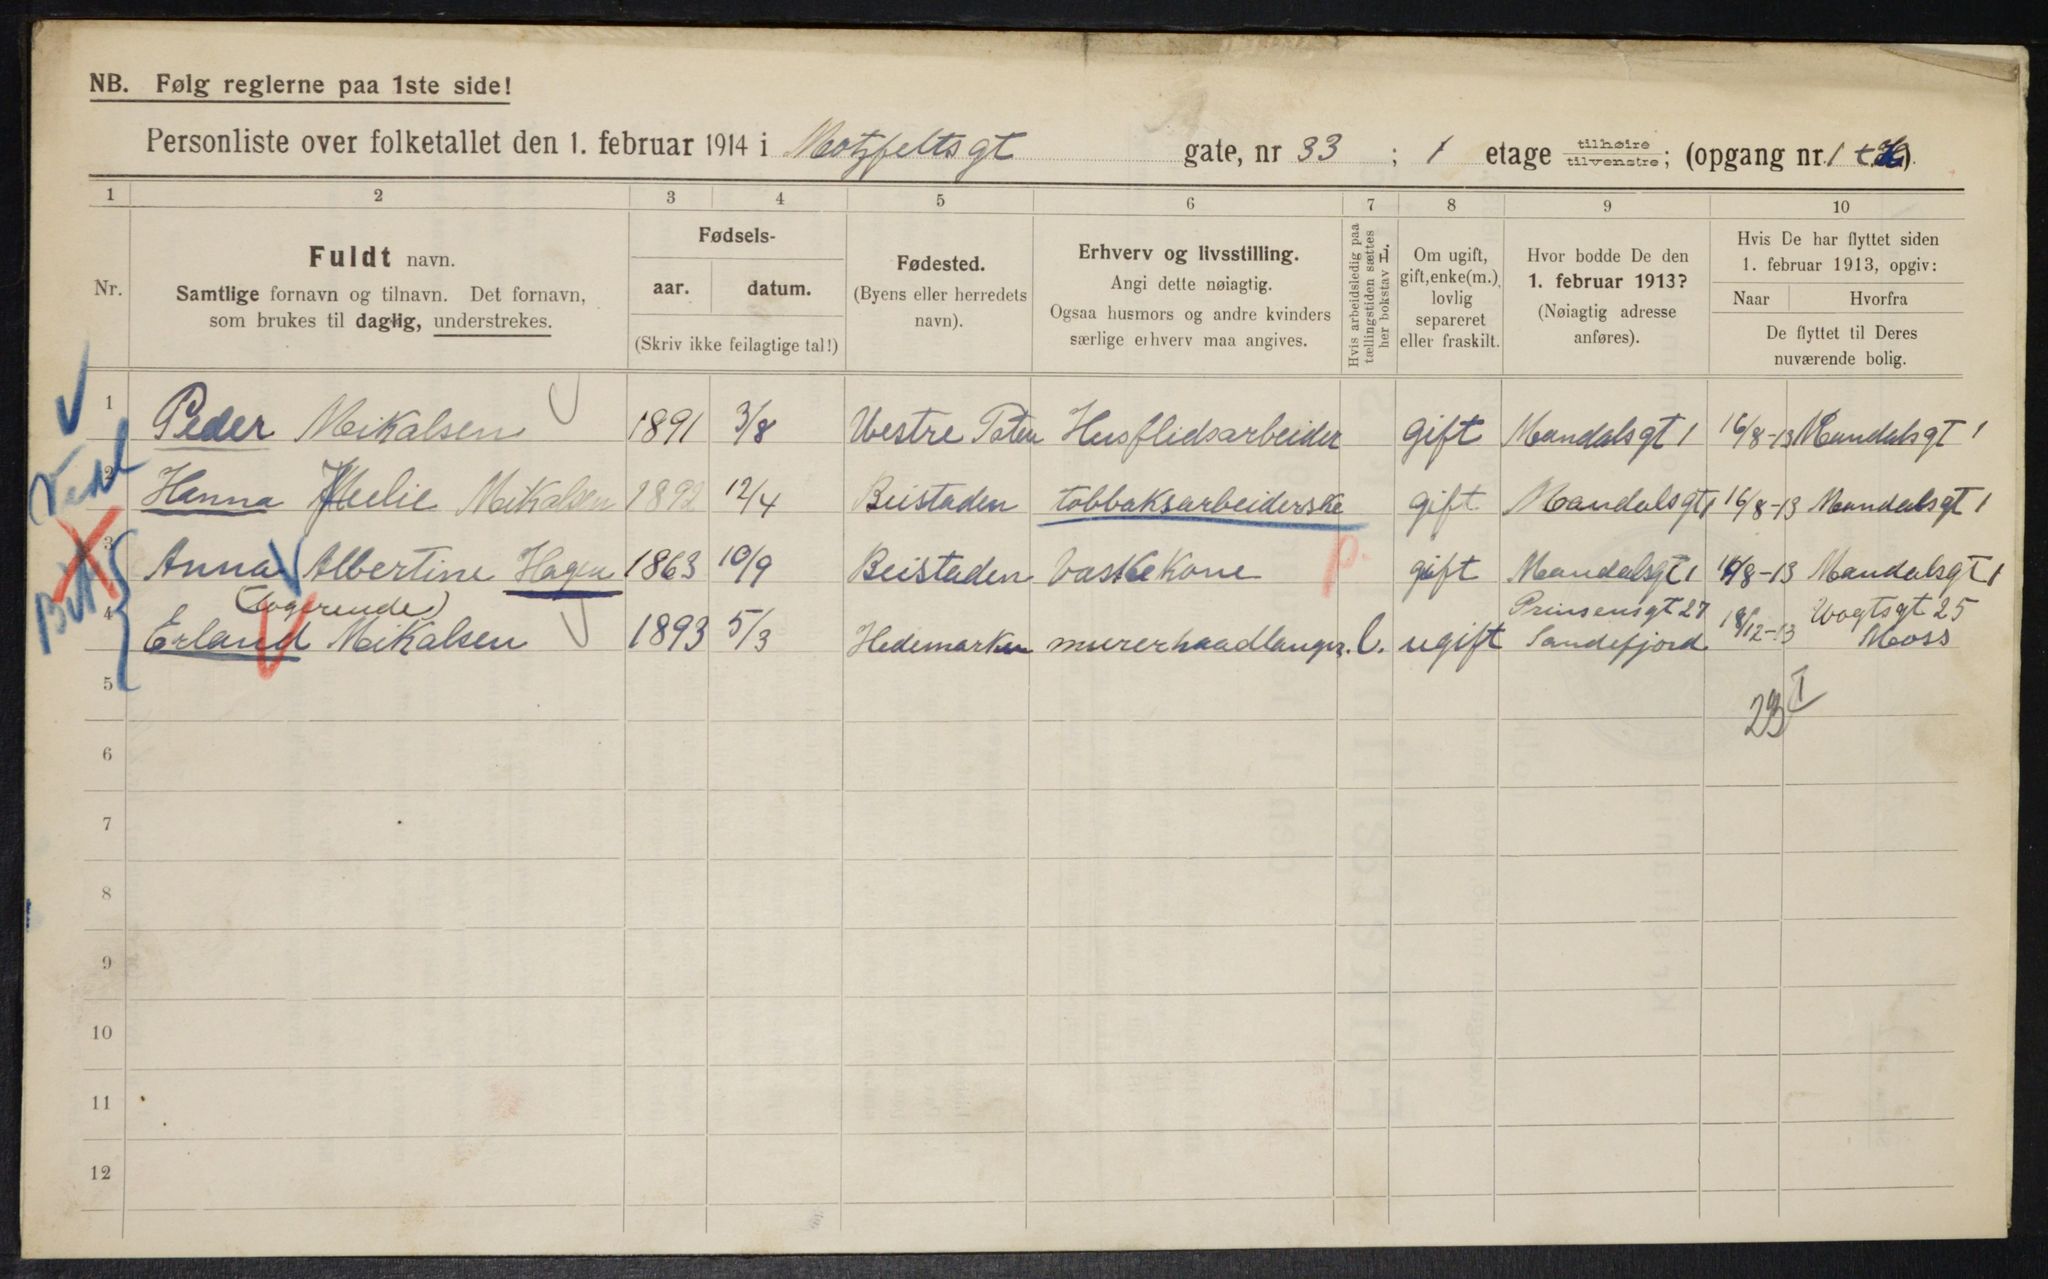 NB. Følg reglerne paa 1ste side!
Personliste over folketallet den 1. februar 1914 i Motzfeltsgt gate, nr 33 ; 1 etage tilhøire tilvenstre; (opgang nr. 1
1 2 3 4 5 6 7 8 9 10
Nr.
Fuldt navn.
Samtlige fornavn og tilnavn. Det fornavn,
som brukes til daglig, understrekes.
Fødsels-
aar. datum.
(Skriv ikke feilagtige tal!)
Fødested.
(Byens eller herredets
navn).
Erhverv og livsstilling.
Angi dette nøiagtig.
Ogsaa husmors og andre kvinders
særlige erhverv maa angives.
Hvis arbeidsledig paa
tællingstiden sættes
her bokstav L.
Om ugift,
gift, enke(m.),
lovlig
separeret
eller fraskilt.
Hvor bodde De den
1. februar 1913?
(Nøiagtig adresse
anføres).
Hvis De har flyttet siden
1. februar 1913, opgiv:
Naar Hvorfra
De flyttet til Deres
nuværende bolig.
1 Peder Mikalsen 1891 3/8 Westre Toten Husflidsarbeider gift Mandalsgt 1 16/8-13 Mandalsgt 1
2 Hanna Mikalsen 1892 12/4 Beistaden tobbaksarbeiderske gift Mandalsgt 1 16/8-13 Mandalsgt 1
3 Anna Albertine Hagen 1863 10/9 Beistaden Vaskekone gift Mandalsgt 1 16/8-13 Mandalsgt 1
(logerende) Prinsensgt 27 Vogtsgt 25
4 Erland Mikalsen 1893 5/3 Hedemarken murerhaadlanger. L. ugift Sandefjord 18/12-13 Moss
5
23 I
6
7
8
9
10
11
12